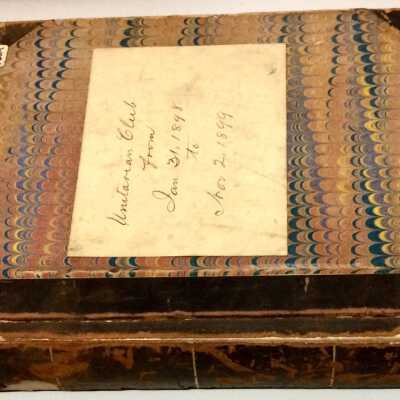 Unitarian Club
from
Jan 31, 1898
to
Nov 2, 1899